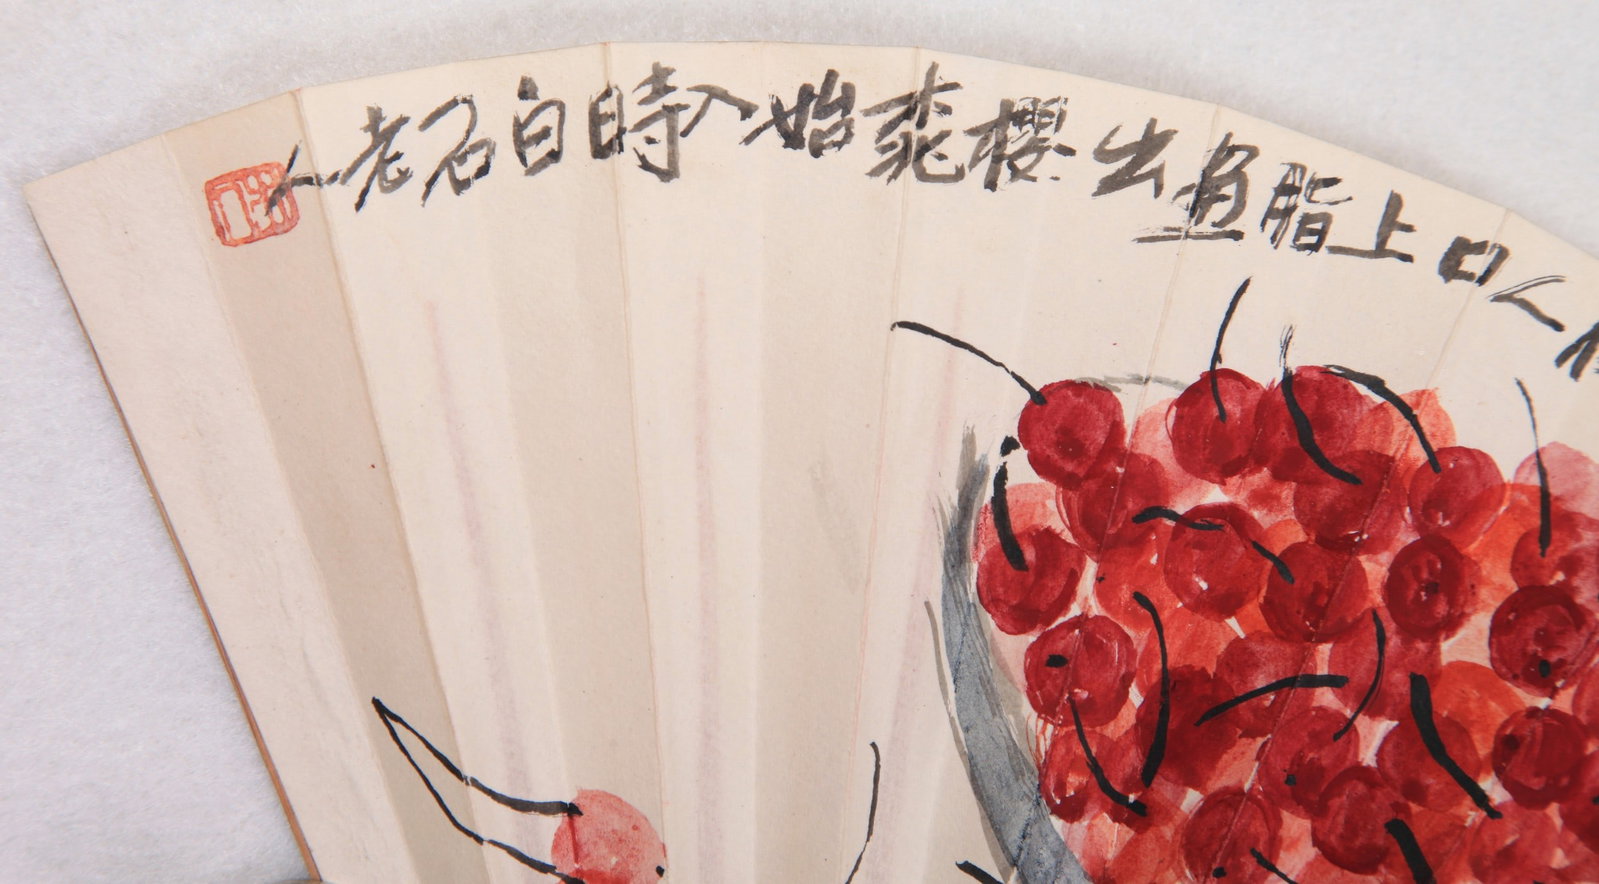 人口上脂畫出櫻桃始入時白石老人